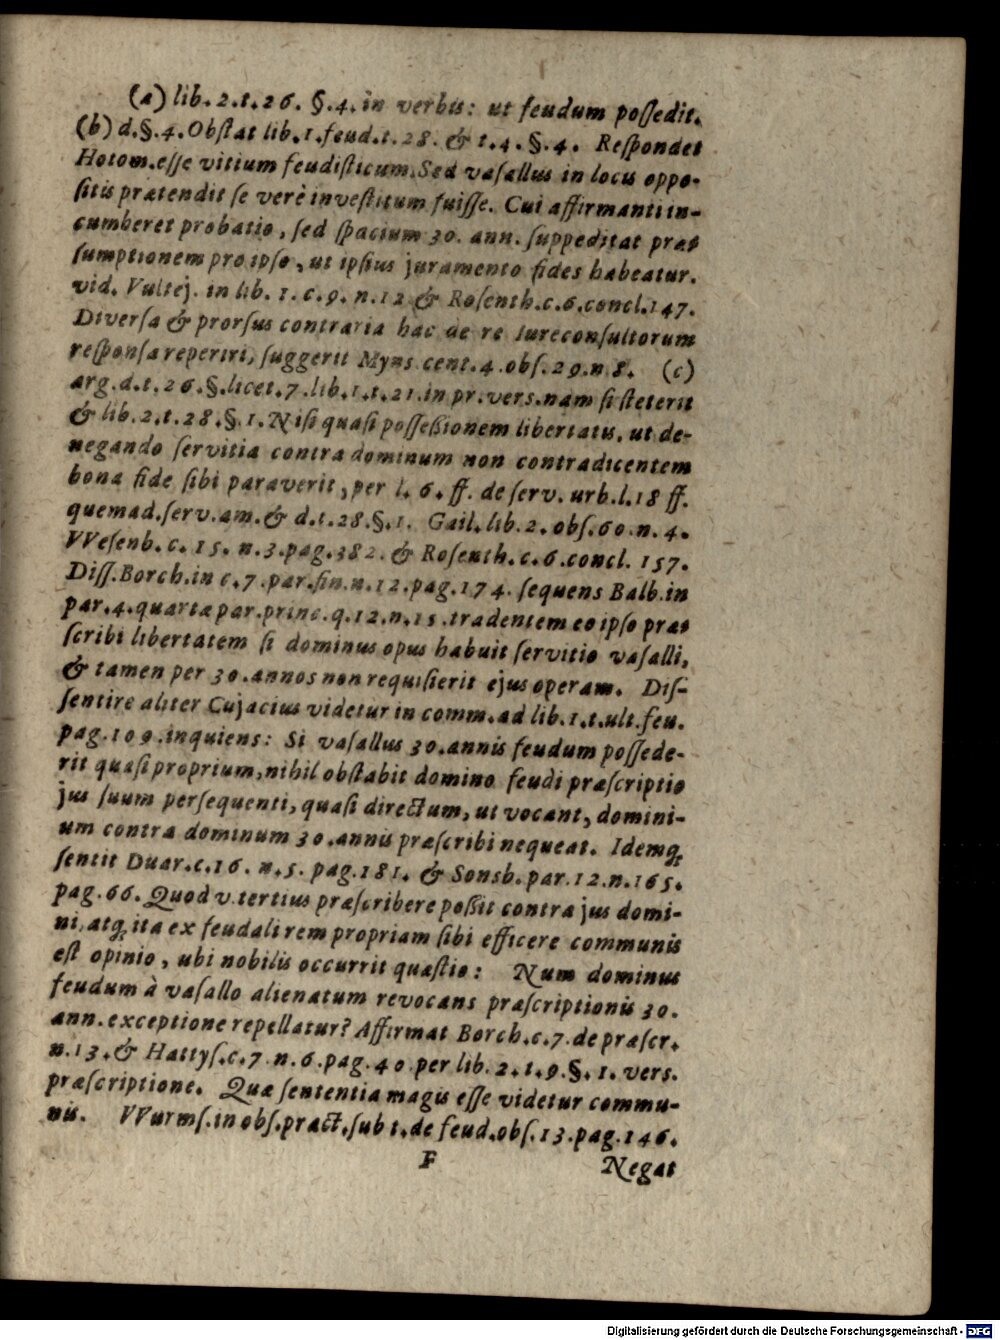 (a) lib. 2. t. 26. §. 4. in verbis: ut feudum poſſedit.
(b) d. §. 4. Obſtat lib. 1. feud. t. 28. & t. 4. §. 4. Reſpondet
Hotom. eſſe vitium feudiſticum. Sed vaſallus in locis oppo-
ſitis prætendit ſe verè inveſtitum fuiſſe. Cui affirmanti in-
cumberet probatio, ſed ſpacium 30. ann. ſuppeditat præ-
ſumptionem pro ipſo, ut ipſius juramento fides habeatur.
vid. Vultej. in lib. 1. c. 9. n. 12 & Roſenth. c. 6. concl. 147.
Diverſa & prorſus contraria hac de re Iureconſultorum
reſponſa reperiri, ſuggerit Myns cent. 4. obſ. 29. n 8. (c)
arg. d. t. 26. §. licet. 7. lib. 1. t. 21. in pr. verſ. nam ſi ſteterit
& lib. 2. t. 28. §. 1. Niſi quaſi poſſeßionem libertatis, ut de-
negando ſervitia contra dominum non contradicentem
bona fide ſibi paraverit, per l. 6. ff. de ſerv. urb. l. 18 ff.
quemad. ſerv. am. & d. t. 28. §. 1. Gail. lib. 2. obſ. 60. n. 4.
VVeſenb. c. 15. n. 3. pag. 382. & Roſenth. c. 6. concl. 157.
Diſſ. Borch. in c. 7. par. fin. n. 12. pag. 174. ſequens Balb. in
par. 4. quartæ par. princ. q. 12. n. 15. tradentem eo ipſo præ-
ſcribi libertatem ſi dominus opus habuit ſervitio vaſalli,
& tamen per 30. annos non requiſierit ejus operam. Diſ-
ſentire aliter Cujacius videtur in comm. ad lib. 1. t. ult. feu.
pag. 109. inquiens: Si vaſallus 30. annis feudum poſſede-
rit quaſi proprium, nihil obſtabit domino feudi præſcriptio
jus ſuum perſequenti, quaſi directum, ut vocant, domini-
um contra dominum 30. annis præſcribi nequeat. Idemq;
ſentit Duar. c. 16. n. 5. pag. 181. & Sonsb. par. 12. n. 165.
pag. 66. Quod v. tertius præſcribere poßit contra jus domi-
ni, atq; ita ex feudali rem propriam ſibi efficere communis
eſt opinio, ubi nobilis occurrit quæſtio: Num dominus
feudum à vaſallo alienatum revocans præſcriptionis 30.
ann. exceptione repellatur? Affirmat Borch. c. 7. de præſcr.
n. 13. & Hattyſ. c. 7. n. 6. pag. 40 per lib. 2. t. 9. §. 1. verſ.
præſcriptione. Quæ ſententia magis eſſe videtur commu-
nis. VVurmſ. in obſ. pract. ſub t. de feud. obſ. 13. pag. 146.
F Negat
Digitalisierung gefördert durch die Deutsche Forschungsgemeinschaft - DFG